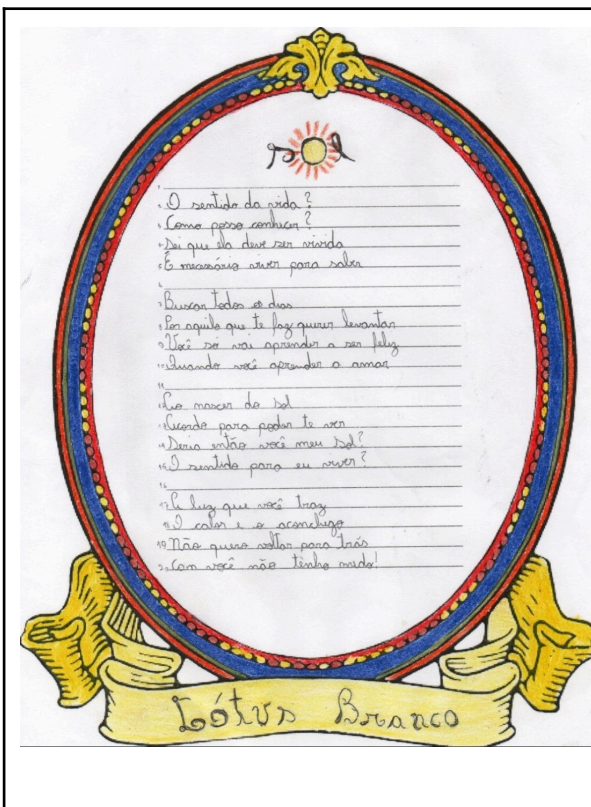 sol
1
2 O sentido da vida?
3 Como posso conhecer?
4 Sei que ela deve ser vivida
5 É necessário viver para saber
6
7 Buscar todos os dias
8 Por aquilo que te faz querer levantar
9 Você só vai aprender a ser feliz
10 Quando você aprender a amar
11
12 Ao nascer do sol
13 Acordo para poder te ver
14 Seria então você meu sol?
15 O sentido para eu viver?
16
17 A luz que você traz
18 O calor e o aconchego
19 Não quero voltar para trás
20 Com você não tenho medo!
Lótus Branco